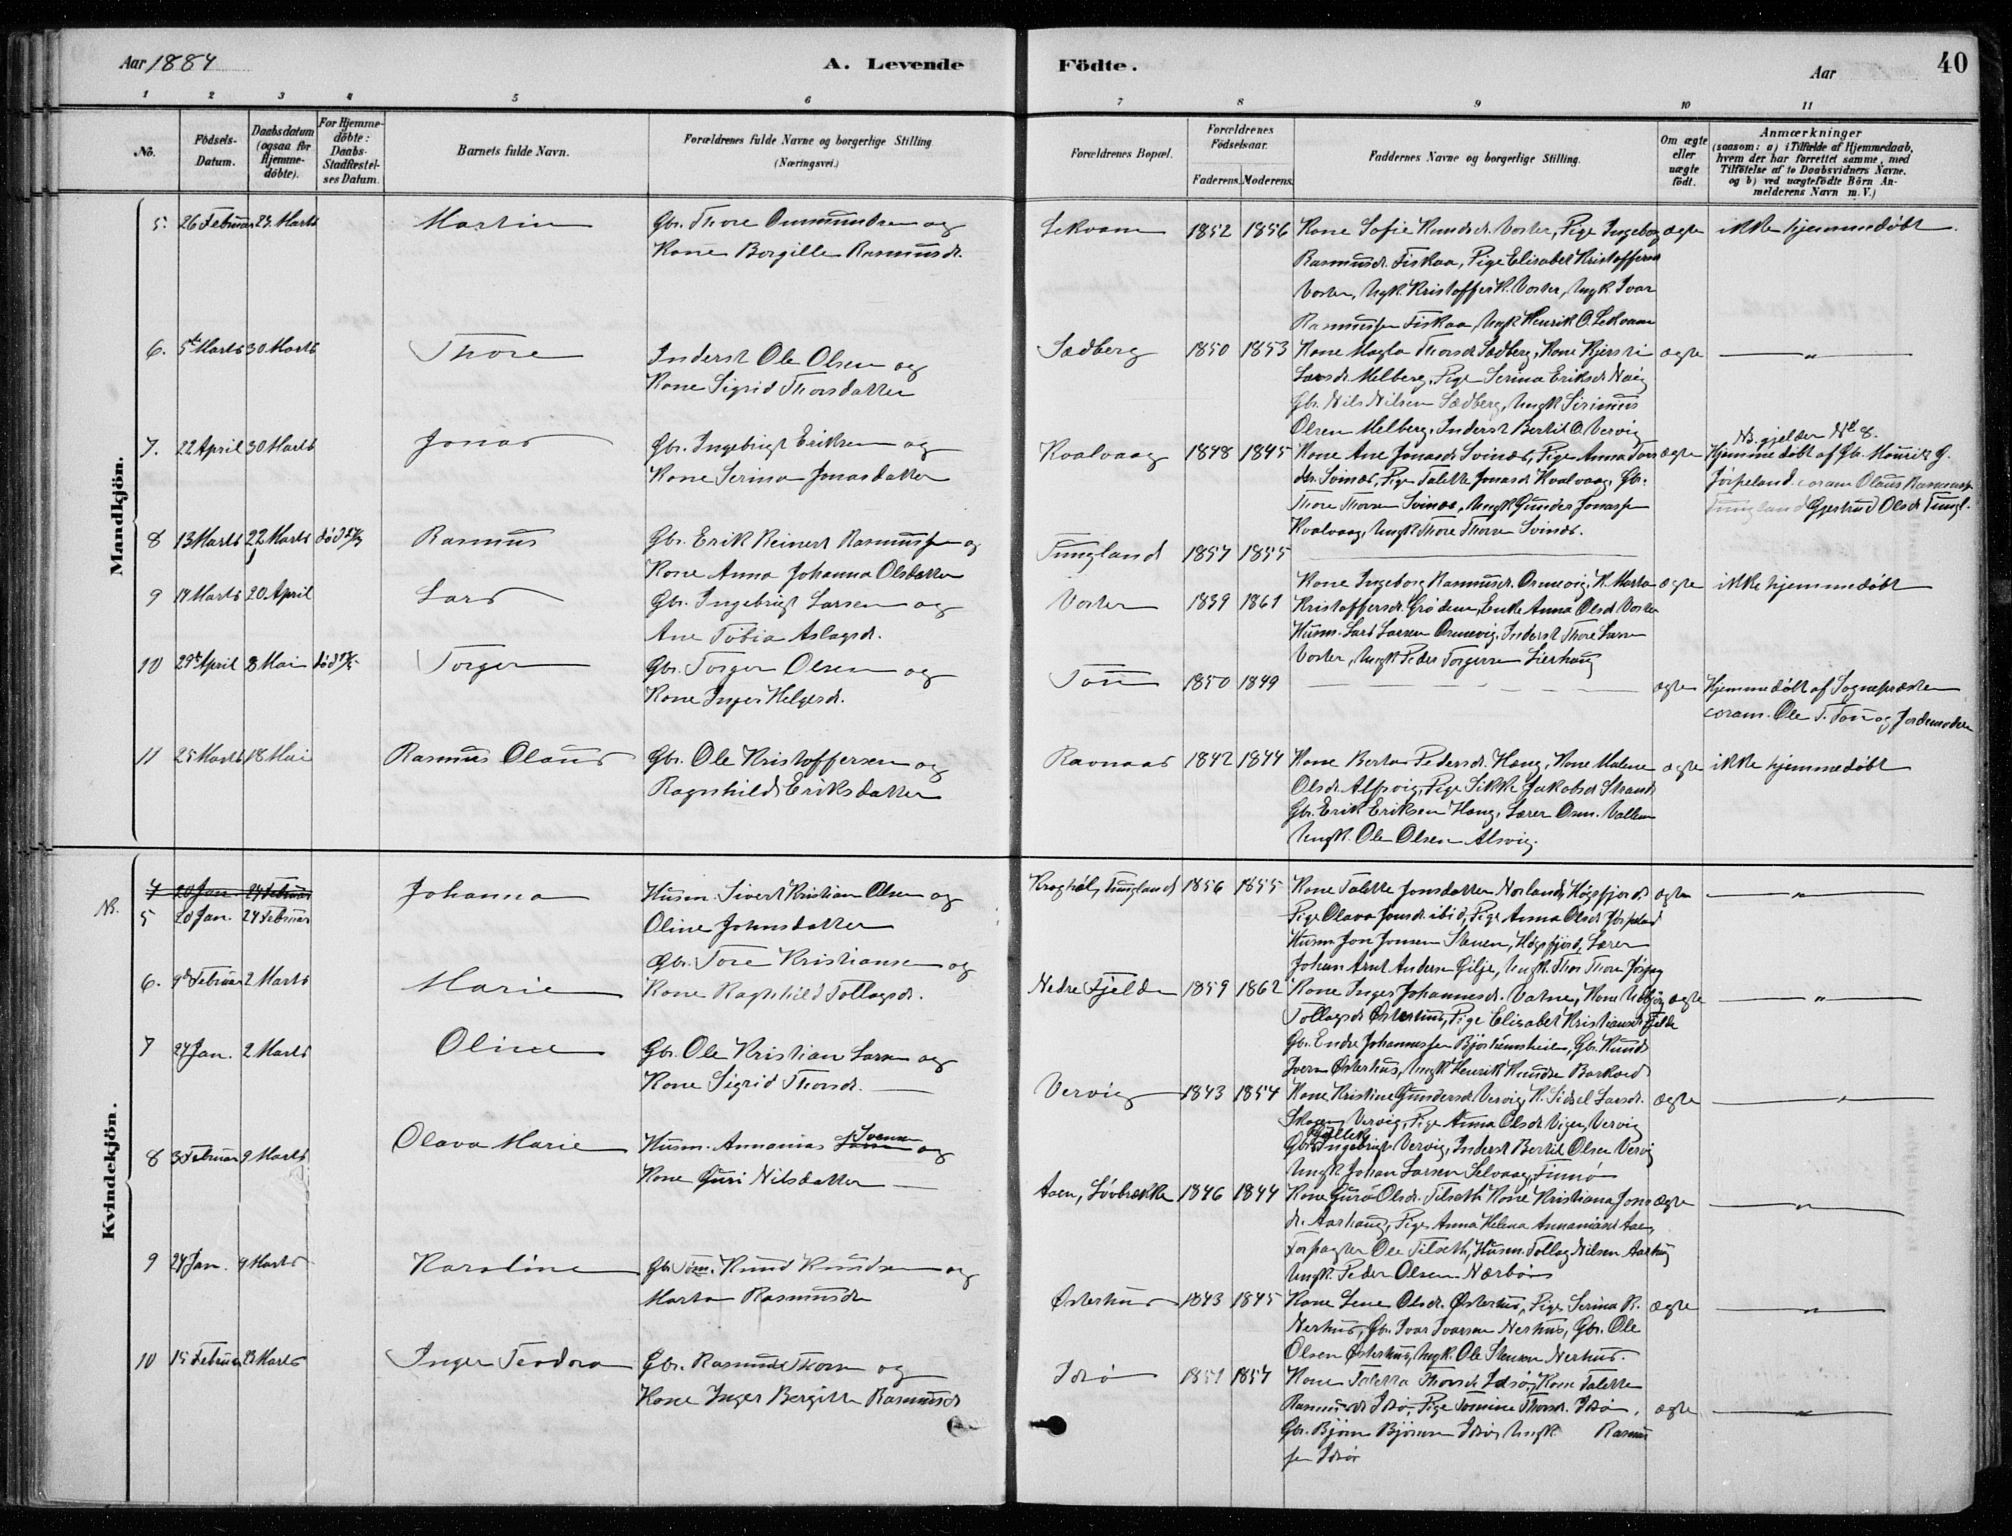 Aar 1884
A. Levende
Födte.
Aar
40
1 2 3 4 5 6 7 8 9 10 11
No.
Födsels-Datum.
Daabsdatum (ogsaa for Hjemme-döbte).
For Hjemme-döbte: Daabs-Stadfæstel-ses Datum.
Barnets fulde Navn.
Forældrenes fulde Navne og borgerlige Stilling (Næringsvei.)
Forældrenes Bopæl.
Forældrenes Födselsaar.
Faderens. Moderens.
Faddernes Navne og borgerlige Stilling.
Om ægte eller uægte födt.
Anmærkninger
(saasom: a) i Tilfælde af Hjemmedaab,
hvem der har forrettet samme, med
Tilföielse af to Daabsvidners Navne.
og b) ved uægtefödte Börn An-
melderens Navn m.V.)
Mandkjön.
5. 26 Februar 23 Marts Martin Gbr. Thore Ommundsen og
Kone Borgille Rasmusdr.
Lekvam 1852 1856 Kone Sofie Knudsdr. Voster, Pige Ingeborg ægte ikke hjemmedøbt.
Rasmusdr. Fiskaa, Pige Elisabet Kristoffersd
Voster, Ungk. Kristoffer K. Voster, Ungk Ivar
Rasmussen Fiskaa, Ungk Henrik O. Lekvam
6. 5te Marts 30 Marts Thore Inderst Ole Olsen og
Kone Sigrid Thorsdatter
Sædberg 1850 1853 Kone Magla Thorsdr Sædberg, Kone Kjersti ægte — " —
Larsdr. Melberg, Pige Serina Eriksdr Någ
Gbr. Nils Nilsen Sædberg, Ungk Sirinius
Olsen Melberg, Inderst Bertil O. Vervig
7. 22 April 30 Marts Jonas Gbr. Ingebrigt Eriksen og
Kone Serina Jonasdatter
Kvalvaag 1848 1845 Kone Ane Jonasdr Svinæs, Pige Anna Tors ægte
dtr. Svinæs, Pige Talette Jonasdr Kvalvaag, Gbr.
Thore Thorsen Svinæs, Ungk Gunder Jonassen
Kvalvaag, Ungk Thore Thorsen Svinæs.
NB. gjelder No 8.
Hjemmedøbt af Gbr. Mauritz G.
Jørpeland. coram Olaus Rasmussen
Tungland Gjertrud Olsdr Tungl.
8 13 Marts 22 Marts død Rasmus Gbr. Erik Reinert Rasmussen og
Kone Anna Johanna Olsdatter
Tungland 1857 1855
9 14 Marts 20 April Lars Gbr. Ingebrigt Larsen og
Ane Tobia Aslagsdr.
Voster 1839 1861 Kone Ingeborg Rasmusdr. Osmevig, K. Marta ægte ikke hjemmedøbt
Kristoffersdr. Grødem, Enke Anna Olsdr Voster
Husm. Lars Larsen Osmevig, Inderst Thore Larsen
Voster, Ungk Peder Torgersen Lierhaug
10 29de April 8 Mai død Torger Gbr. Torger Olsen og
Kone Inger Helgesdr.
Tou 1850 1849 — ægte Hjemmedøbt af Sognepræsten
coram. Ole T. Tou og Jordemoderen
11 25 Marts 18 Mai Rasmus Olaus Gbr. Ole Kristoffersen og
Ragnhild Eriksdatter
Ravnaas 1842 1844 Kone Berta Pedersdr. Haug, Kone Malene ægte ikke hjemmedøbt
Olsdr. Alsvig, Pige Sikke Jakobsdr Strand
Gbr. Erik Eriksen Haug, Lærer Osm. Vallem
Ungk. Ole Olsen Alsvig.
Kvindekjön.
4 20 Jan. 24 Februar
NB. 5 20 Jan. 24 Februar Johanna Husm. Sivert Kristian Olsen og
Oline Johnsdatter
Kraghøl, Tungland 1856 1855 Kone Talette Jonsdatter Norland, Høgsfjord. ægte — " —
Pige Olava Jonsdr ibid, Pige Anna Olsdr Jørpeland
Husm Jon Jonsen Stenen, Høgsfjord, Lærer
Johan Arnt Andersen Gilje, Ungk. Thore
6. 9de Februar 2 Marts Marie Gbr. Tore Kristiansen og
Kone Ragnhild Tollagsdr.
Nedre Fjelde 1859 1862 Kone Inger Johannesdr. Vatne, Kone ægte — " —
Tollagsdr Østerhus, Pige Elisabet Kristiansdr Fjelde
Gbr. Endre Johannessen Bjørheimsheien, Gbr. Knud
Iversen Østerhus, Ungk Henrik Knudsen Barkved
7 24 Jan. 2 Marts Oline Gbr. Ole Kristian Larsen og
Kone Sigrid Thorsdr.
Vervig 1843 1854 Kone Kristine Gundersdr Vervig, K. Sidsel Larsdr. ægte — " —
Skogen Vervig, Pige Anna Olsdr Vigen, Vervig
Gbr. Ingebrigt Vervig, Inderst Bertil Olsen Vervig
Ungk. Johan Larsen Selvaag, Finnø
8 3 Februar 9 Marts Olava Marie Husm. Annanias Svensen og
Kone Guri Nilsdatter
Aaen, Løvbrække 1846 1844 Kone Guro Olsdr. Tilseth Kone Kristiana Jons ægte — " —
dr. Aarhaug, Pige Anna Helena Annaniasd Aaen,
Forpagter Ole Tilseth, Husm. Tollag Nilsen Aarhaug
Ungk. Peder Olsen Nærbø
9 24 Jan. 9 Marts Karoline Gbr. Tøm. Knud Knudsen og
Marta Rasmusdr
Østerhus 1843 1845 Kone Lene Olsdr. Østerhus, Pige Serina R. ægte — " —
Nerhus, Gbr. Ivar Ivarsen Nerhus, Gbr. Ole
Olsen Østerhus, Ungk. Ole Stensen Nerhus.
10 15 Februar 23 Marts Inger Teodora Gbr. Rasmus Thorsen og
Kone Inger Bergitte Rasmusdr
Idsø 1851 1857 Kone Taletta Thorsdr Idsø, Kone Talette
Rasmusdr Idsø, Pige Tomine Thorsdr. Idsø, ægte — " —
Gbr. Bjørn Bjørnsen Idsø, Ungk Rasmus
sen Idsø